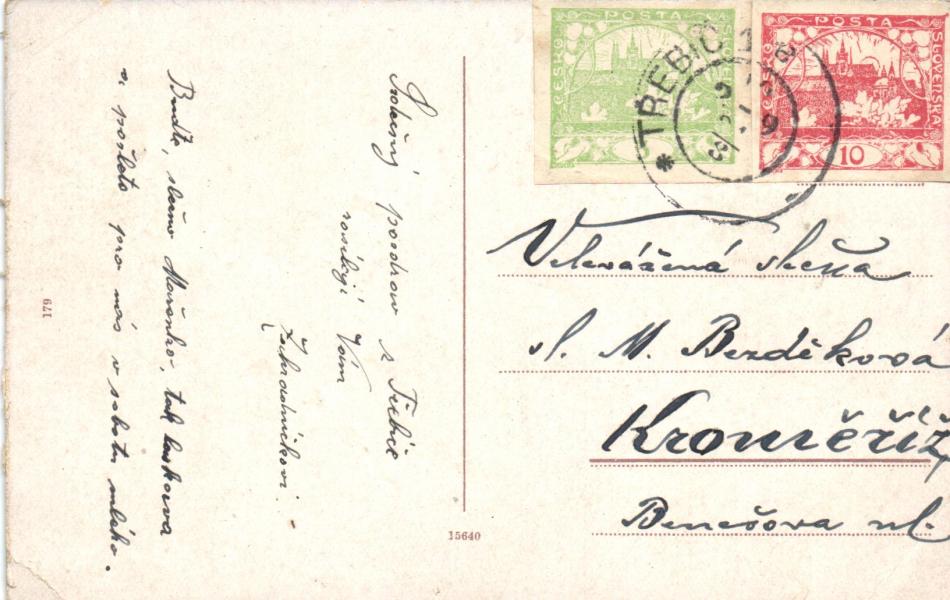 Srdečný pozdrav z Třebíče
posílají Vám
Zahradníkovi.
Buďte, slečno Mařenko, tak laskava
a pošlete pro nás v sobotu mléko.
179
15640
POŠTA
ČESKO
POŠTA
ČESKO
SLOVENSKÁ
10
* TŘEBÍČ 1
Velevážená slečna
sl. M. Bezděková
Kroměříž
Benešova ul.